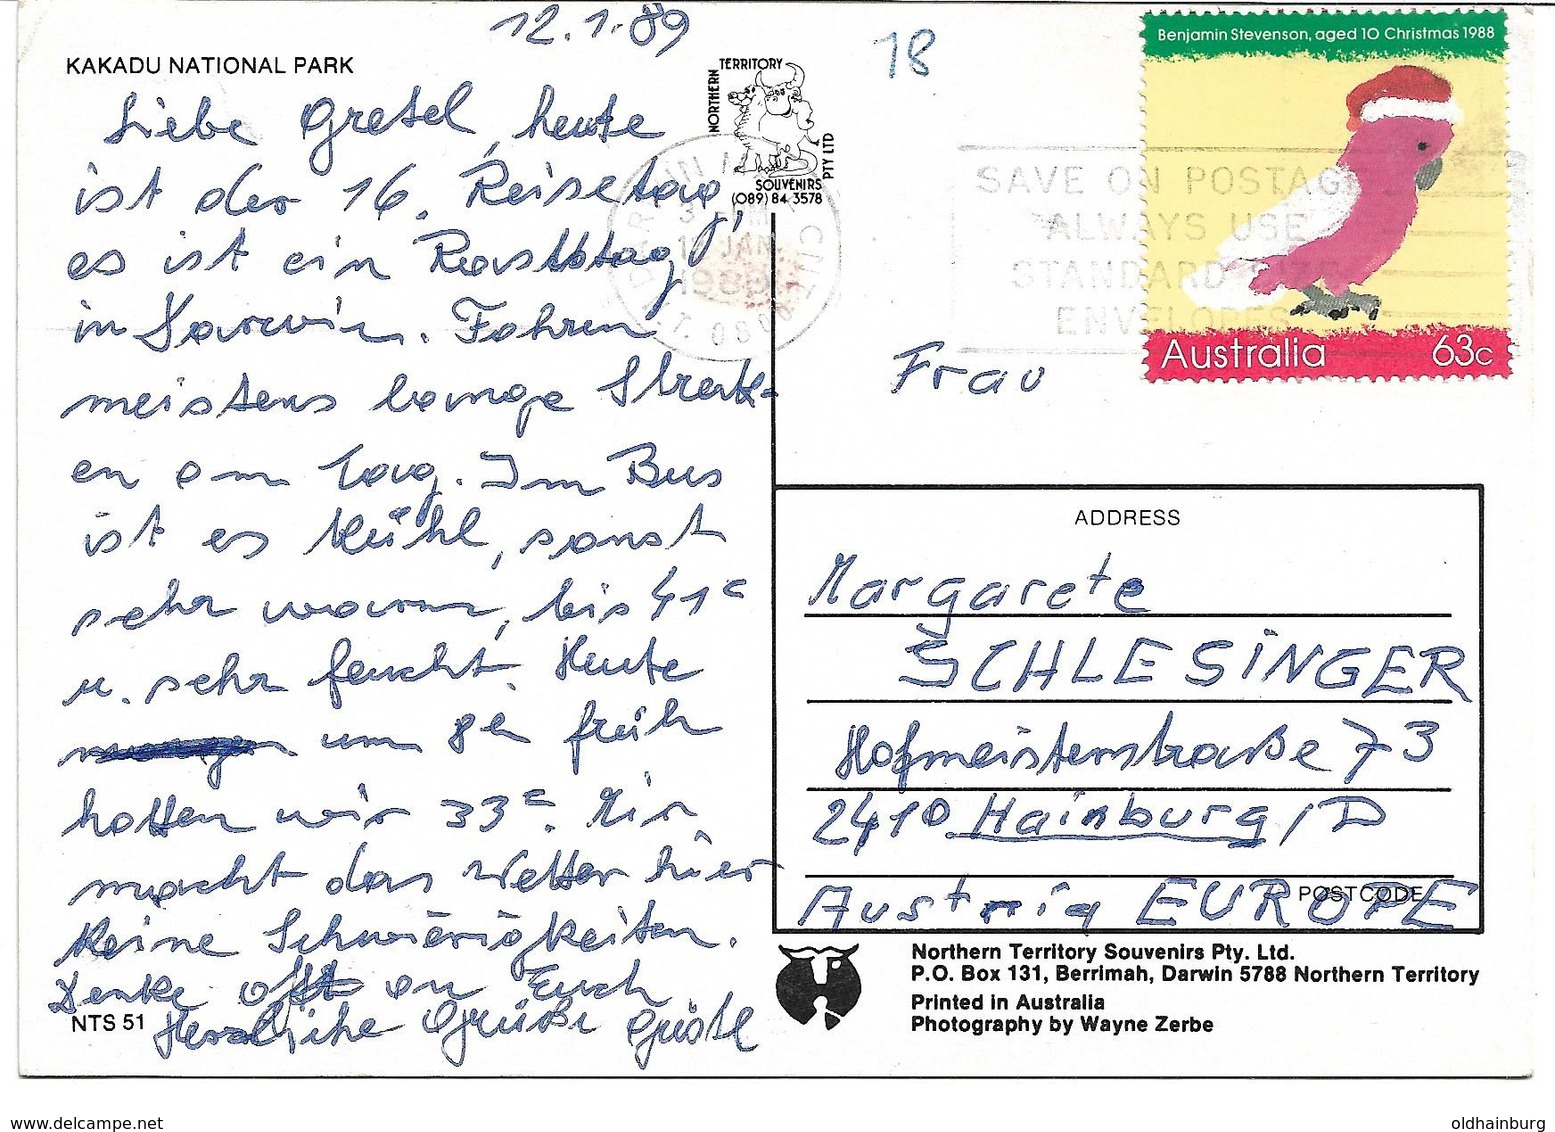 12.1.89
18
KAKADU NATIONAL PARK
Liebe Gretel, heute
ist der 16. Reisetag,
es ist ein Rasttag
in Darwin. Fahren
meistens lange Streck-
en am Tag. Im Bus
ist es kühl, sonst
sehr warm, bis 41°
u. sehr feucht. Heute
um 8h früh
hatten wir 33°. Mir
macht das Wetter hier
keine Schwierigkeiten.
Denke oft an Euch
Herzliche Grüße Gustl
NTS 51
NORTHERN TERRITORY
SOUVENIRS PTY LTD
(089) 84 3578
DARWIN
JAN
Benjamin Stevenson, aged 10 Christmas 1988
Australia 63c
SAVE ON POSTAGE
ALWAYS USE
STANDARD SIZE
ENVELOPES
Frau
ADDRESS
Margarete
SCHLESINGER
Hofmeisterstraße 73
2410 Hainburg/D
Austria EUROPE
POSTCODE
Northern Territory Souvenirs Pty. Ltd.
P.O. Box 131, Berrimah, Darwin 5788 Northern Territory
Printed in Australia
Photography by Wayne Zerbe
www.delcampe.net
oldhainburg